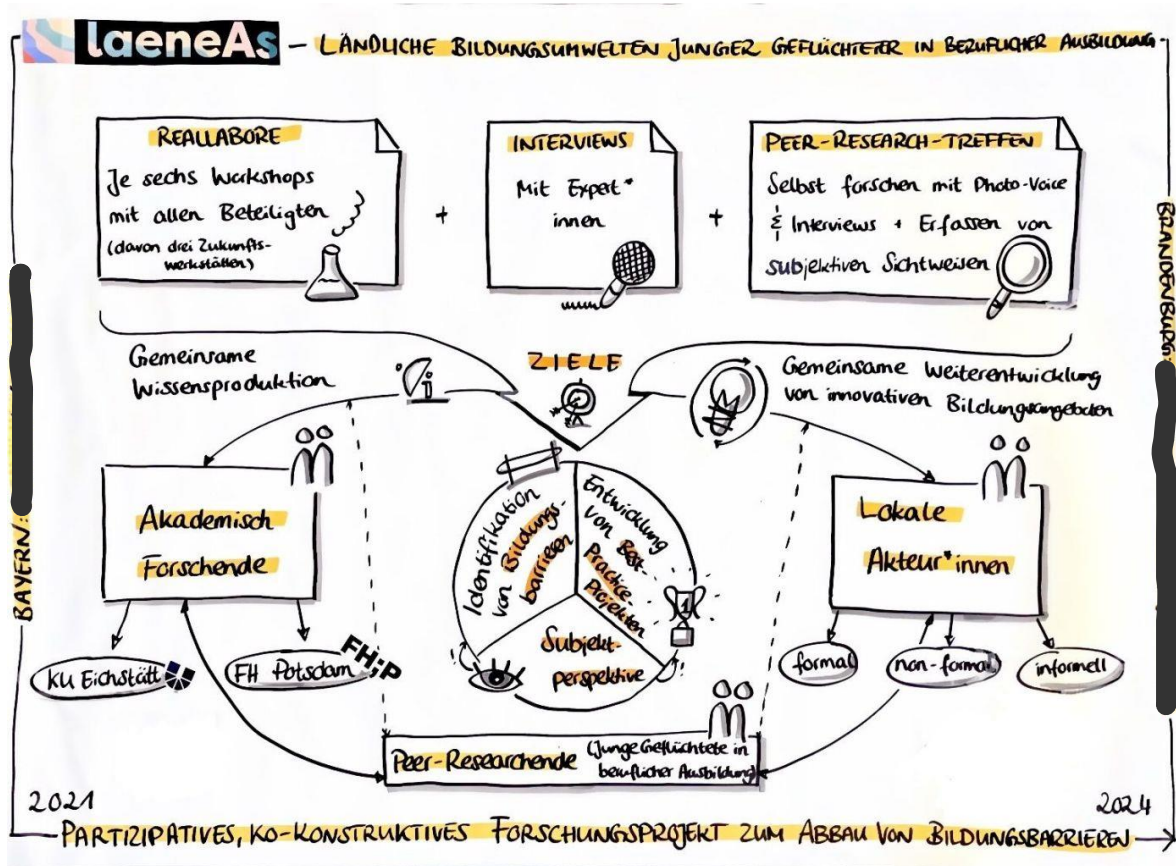 laeneAs – LÄNDLICHE BILDUNGSUMWELTEN JUNGER GEFLÜCHTETER IN BERUFLICHER AUSBILDUNG
REALLABORE
Je sechs Workshops
mit allen Beteiligten
(davon drei Zukunfts-
werkstätten)
+
INTERVIEWS
Mit Expert*
innen
+
PEER-RESEARCH-TREFFEN
Selbst forschen mit Photo-Voice
& Interviews + Erfassen von
subjektiven Sichtweisen
BRANDENBURG:
BAYERN:
Gemeinsame
Wissensproduktion
ZIELE
Gemeinsame Weiterentwicklung
von innovativen Bildungsangeboten
Akademisch
Forschende
KU Eichstätt
FH Potsdam
FH;P
Identifikation
von Bildungs-
barrieren
Entwicklung
von Best-
Practice-
Projekten
1
Subjekt-
perspektive
Lokale
Akteur*innen
formal
non-formal
informell
Peer-Researchende (Junge Geflüchtete in
beruflicher Ausbildung)
2021
2024
PARTIZIPATIVES, KO-KONSTRUKTIVES FORSCHUNGSPROJEKT ZUM ABBAU VON BILDUNGSBARRIEREN